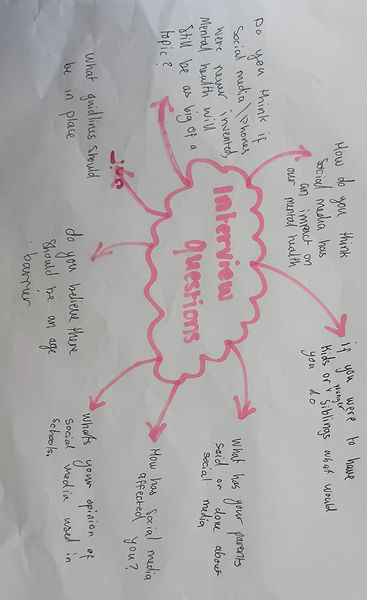 Interview
questions
Do you think if
Social media \ phones
were never invented,
Mental health will
still be as big of a
topic?
How do you think
Social media has
an impact on
our mental health
if you were to have
kids or younger siblings what would
you do
What has your parents
said or done about
social media
How has Social media
affected you?
Whats your opinion of
social media used in
schools,
do you believe there
should be an age
barrier
What guidlines should
be in place